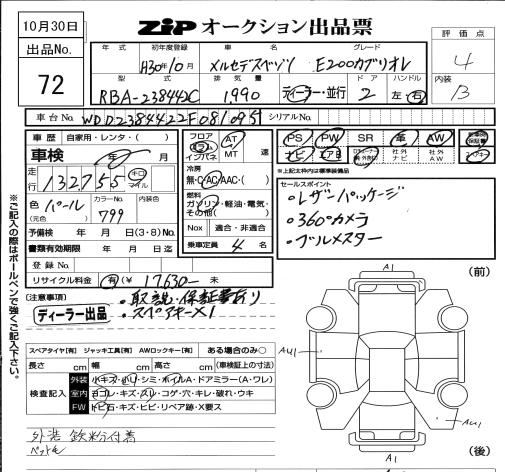 10月30日
ZIP オークション出品票
出品No.
72
年式 初年度登録 車名 グレード
H30年10月 メルセデスベンツ E200カブリオレ
評価点
4
内装
B
型式 排気量 ドア ハンドル
RBA-238442C 1,990 ディーラー・並行 2 左・右
車台No. WDD2384422F081095 シリアルNo.
車歴 自家用・レンタ・( )
車検 年 月
走行 132755 キロ マイル
色(元色) パール カラーNo. 799 内装色
予備検 年 月 日(3・8) 月 日
書類有効期限 年 月 日迄
登録No.
リサイクル料金 有(¥ 17,630- 未
フロア フラット インパネ
AT MT 速
冷房 無・C・AC・AAC・( )
燃料 ガソリン・軽油・電気・その他( )
Nox 適合・非適合
乗車定員 4 名
PS PW SR 革 AW
ナビ エアB 社外ナビ 社外AW
※上記太枠内は標準装備品
セールスポイント
・レザーパッケージ
・360°カメラ
・ブルメスター
〈注意事項〉
・取説・保証書あり
・スペアキー×1
ディーラー出品
※ご記入の際はボールペンで強くご記入下さい。
スペアタイヤ[有] ジャッキ工具[有] AWロックキー[有] ある場合のみ○
長さ cm 幅 cm 高さ cm (車検証上の寸法)
検査記入
外装 小キズ・小凹・シミ・ホイルA・ドアミラー(A・ワレ)
室内 ヨゴレ・キズ・スリ・コゲ・穴・キレ・破れ・ウキ
FW トビ石・キズ・ヒビ・リペア跡・X要ス
外装 鉄粉付着
(前)
A1
AU1
AU1
A1
(後)